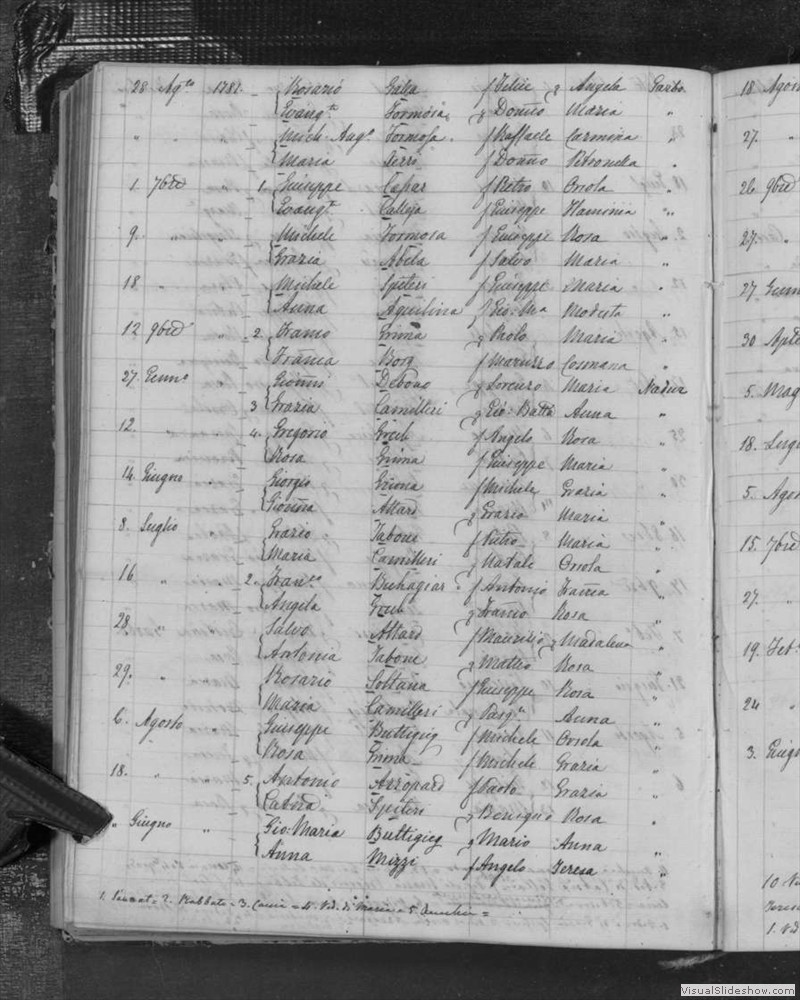 28 Agto 1781 Rosario Galea f Felice q Angela Garbo
Evangta Formosa q Domco Maria "
" " " Mich. Ango Formosa f Raffaele Carmona "
Maria f Domco Petronella "
1. 7bre " 1. Giuseppe Caspar f Pietro Orsola "
Evangta Calleja f Giuseppe Flaminia "
9. " Michele Formosa f Giuseppe Rosa "
Grazia Abela f Salvo Maria "
18 " Michele Spiteri f Giuseppe Maria "
Anna Aquilina f Gio: Ma Modesta "
12 9bre " 2. Franco Grima q Paolo Maria "
Franca Borg f Maruzzo Cosmana "
27. Genno Gionni Debono q Lorenzo Maria Nadur
3 Grazia Camilleri q Gio: Batta Anna "
12. " 4. Gregorio Grech f Angelo Rosa "
Rosa Grima f Giuseppe Maria "
14. Giugno " Giorgio Grima f Michele Grazia "
Gionna Attard q Grazio Maria "
8. Luglio Grazio Tabone f Pietro Maria "
Maria Camilleri q Natale Orsola "
16 " 2. Franco Buhagiar f Antonio Franca "
Angela Grech q Franco Rosa "
28 " Salvo Attard f Maurizio q Madalena "
Antonia Tabone q Matteo Rosa "
29. " Rosario Soltana f Giuseppe Rosa "
Maria Camilleri q Pasqe Anna "
6. Agosto Giuseppe Buttigieg f Michele Orsola "
Rosa Grima f Michele Grazia "
18. " " 5. Antonio Azzopard f Paolo Grazia "
Catna Spiteri q Benigno Rosa "
" Giugno " Gio: Maria Buttigieg q Mario Anna "
Anna Mizzi f Angelo Teresa "
2. Rabbato = 3. = 4. = 5.
18 Agos
27. "
26 9bre
27. "
27 Genn
30 Aple
5. Mag
18. Lugl
5. Agos
15. 7bre
27. "
19. Feb
24 "
3. Giugn
VisualSlideshow.com